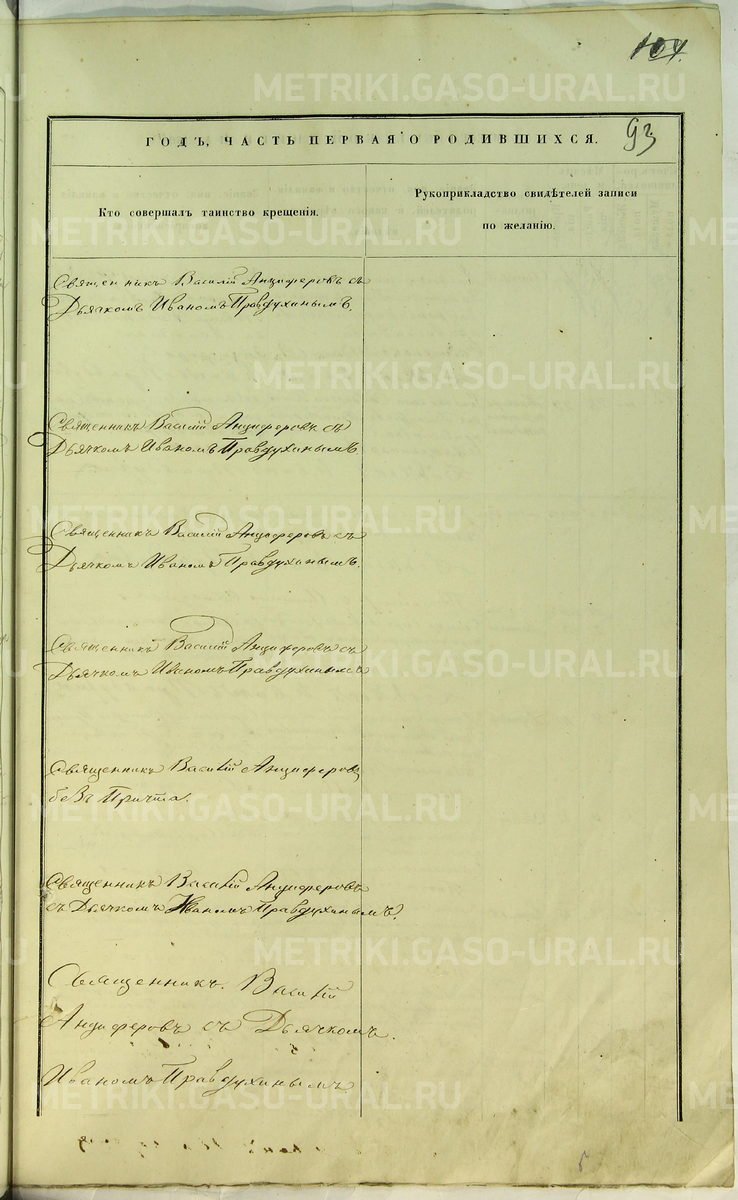 104.
93
ГОДЪ, ЧАСТЬ ПЕРВАЯ О РОДИВШИХСЯ.
Кто совершалъ таинство крещенія.
Рукоприкладство свидѣтелей записи
по желанію.
Священникъ Василій Анциферовъ съ
Дьячкомъ Иваномъ Правдухинымъ.
Священникъ Василій Анциферовъ съ
Дьячкомъ Иваномъ Правдухинымъ
Священникъ Василій Анциферовъ съ
Дьячкомъ Иваномъ Правдухинымъ.
Священникъ Василій Анциферовъ съ
Дьячкомъ Иваномъ Правдухинымъ
Священникъ Василій Анциферовъ
безъ Причта.
Священникъ Василій Анциферовъ
съ Дьячкомъ Иваномъ Правдухинымъ.
Священникъ. Василій
Анциферовъ съ Дьячкомъ.
Иваномъ Правдухинымъ.
METRIKI.GASO-URAL.RU